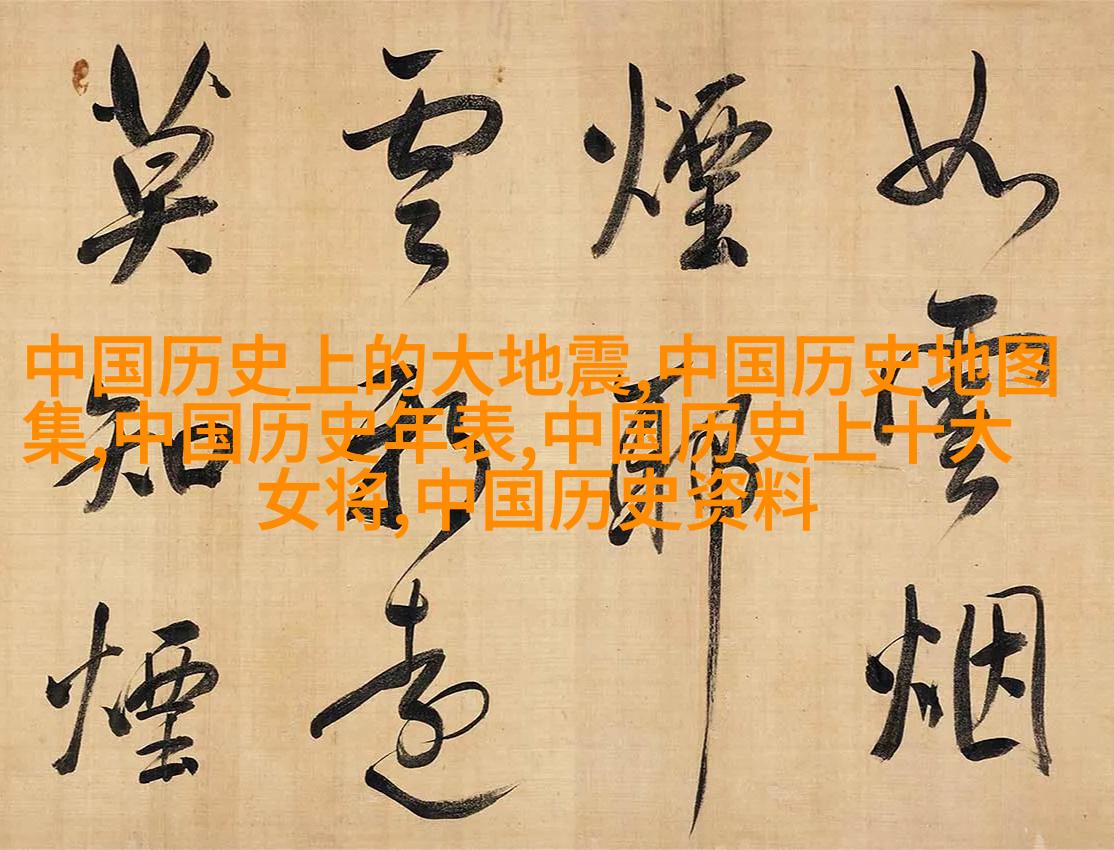 如雲烟
煙
雲遠
莫知煙
中国历史上的大地震,中国历史地图
集,中国历史年表,中国历史上十大
女将,中国历史资料